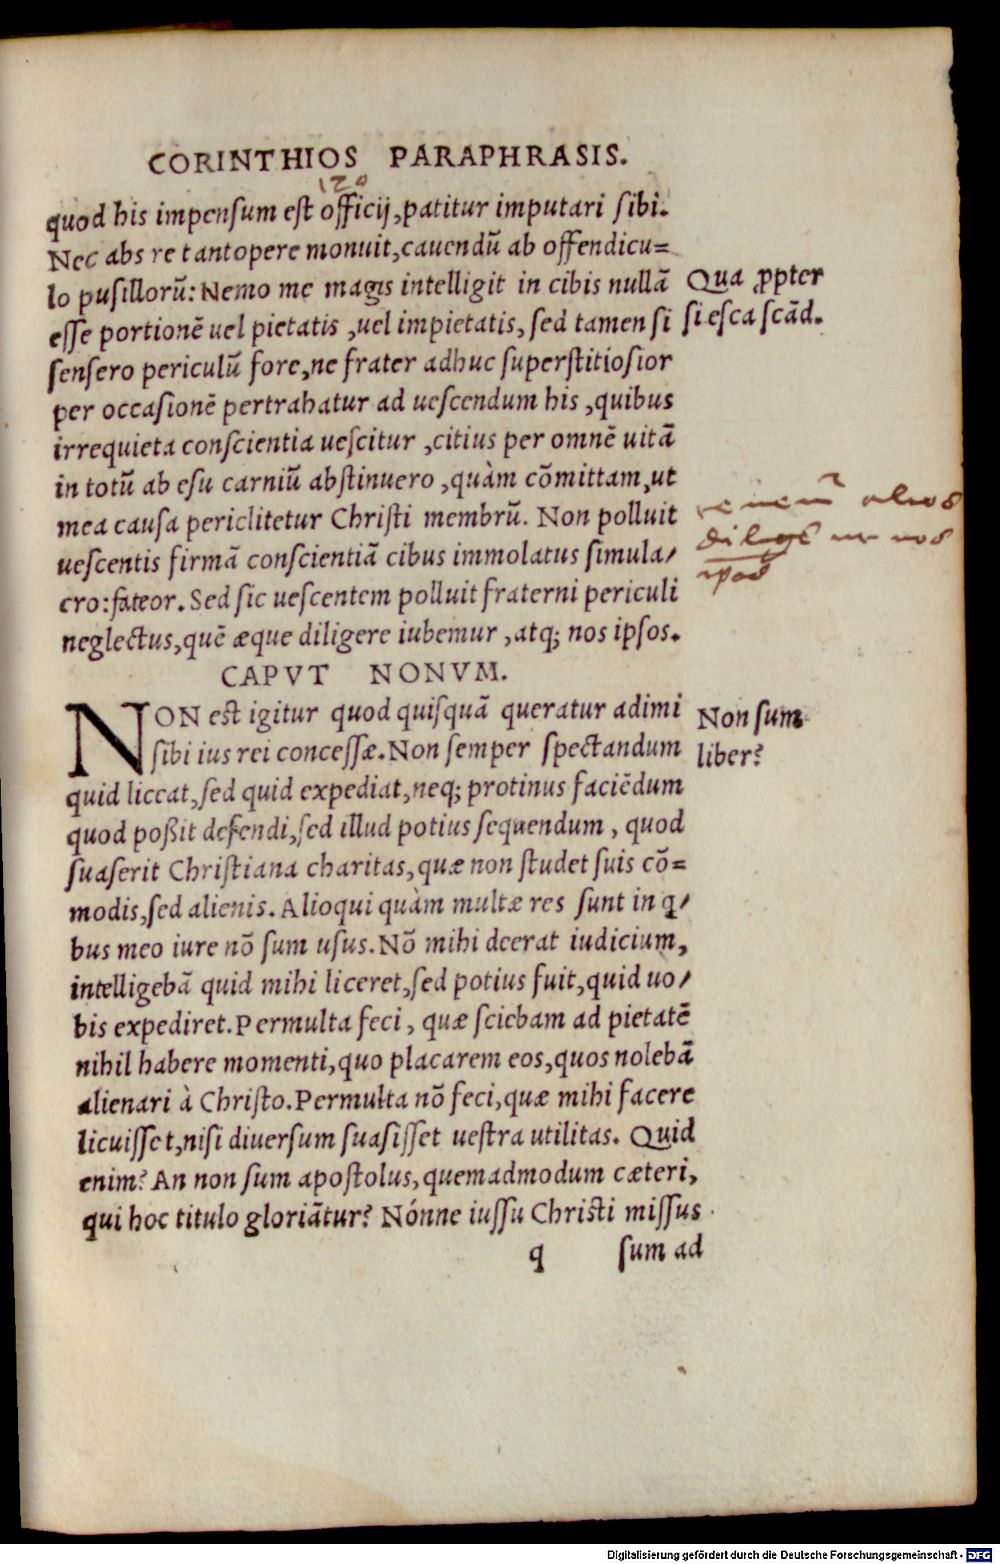 CORINTHIOS PARAPHRASIS.
120
quod his impensum est officij, patitur imputari sibi.
Nec abs re tantopere monuit, cauendū ab offendicu=
lo pusillorū: Nemo me magis intelligit in cibis nullā
Qua ꝓpter
esse portionē uel pietatis, uel impietatis, sed tamen si
si esca scād.
sensero periculū fore, ne frater adhuc superstitiosior
per occasionē pertrahatur ad uescendum his, quibus
irrequieta conscientia uescitur, citius per omnē uitā
in totū ab esu carniū abstinuero, quàm cōmittam, ut
mea causa periclitetur Christi membrū. Non polluit
alios
uescentis firmā conscientiā cibus immolatus simula/
nos
cro: fateor. Sed sic uescentem polluit fraterni periculi
neglectus, quē æque diligere iubemur, atq; nos ipsos.
CAPVT NONVM.
NON est igitur quod quisquā queratur adimi
Non sum
sibi ius rei concessæ. Non semper spectandum
liber?
quid liceat, sed quid expediat, neq; protinus faciēdum
quod poßit defendi, sed illud potius sequendum, quod
suaserit Christiana charitas, quæ non studet suis cō=
modis, sed alienis. Alioqui quàm multæ res sunt in q/
bus meo iure nō sum usus. Nō mihi deerat iudicium,
intelligebā quid mihi liceret, sed potius fuit, quid uo/
bis expediret. Permulta feci, quæ sciebam ad pietatē
nihil habere momenti, quo placarem eos, quos nolebā
alienari à Christo. Permulta nō feci, quæ mihi facere
licuisset, nisi diuersum suasisset uestra utilitas. Quid
enim? An non sum apostolus, quemadmodum cæteri,
qui hoc titulo gloriātur? Nónne iussu Christi missus
q sum ad
Digitalisierung gefördert durch die Deutsche Forschungsgemeinschaft - DFG